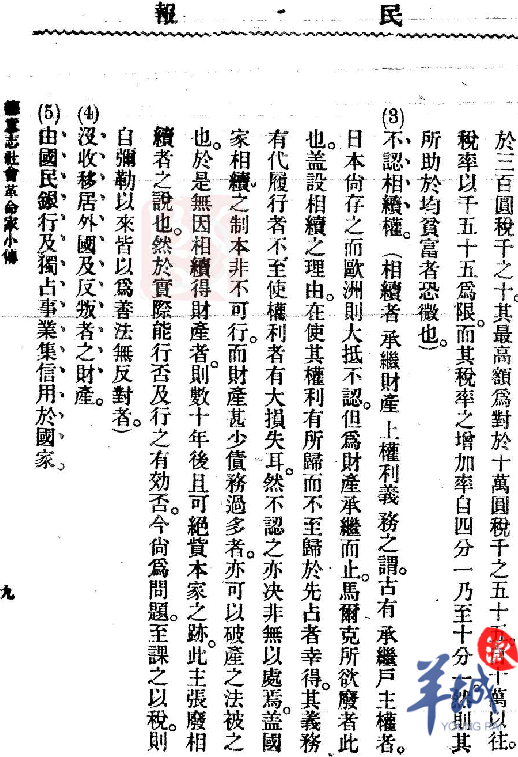 民報
於三百圓稅千之十其最高額爲對於十萬圓稅千之五十五。十萬以往。
稅率以千五十五爲限。而其稅率之增加率自四分一乃至十分一然則其
所助於均貧富者恐微也。)
(3)不認相續權。(相續者承繼財產上權利義務之謂。古有承繼戶主權者。
日本尙存之而歐洲則大抵不認。但爲財產承繼而止。馬爾克所欲廢者此
也。盖設相續之理由。在使其權利有所歸而不至歸於先占者幸得。其義務
有代履行者不至使權利者有大損失耳。然不認之亦决非無以處焉。盖國
家相續之制本非不可行。而財產甚少債務過多者。亦可以破產之法被之
也。於是無因相續得財產者。則數十年後且可絕貲本家之跡。此主張廢相
續者之說也。然於實際能行否及行之有効否。今尙爲問題。至課之以稅。則
自彌勒以來皆以爲善法無反對者。)
(4)沒收移居外國及反叛者之財產。
(5)由國民銀行及獨占事業集信用於國家。
德意志社會革命家小傳
九
羊城
派